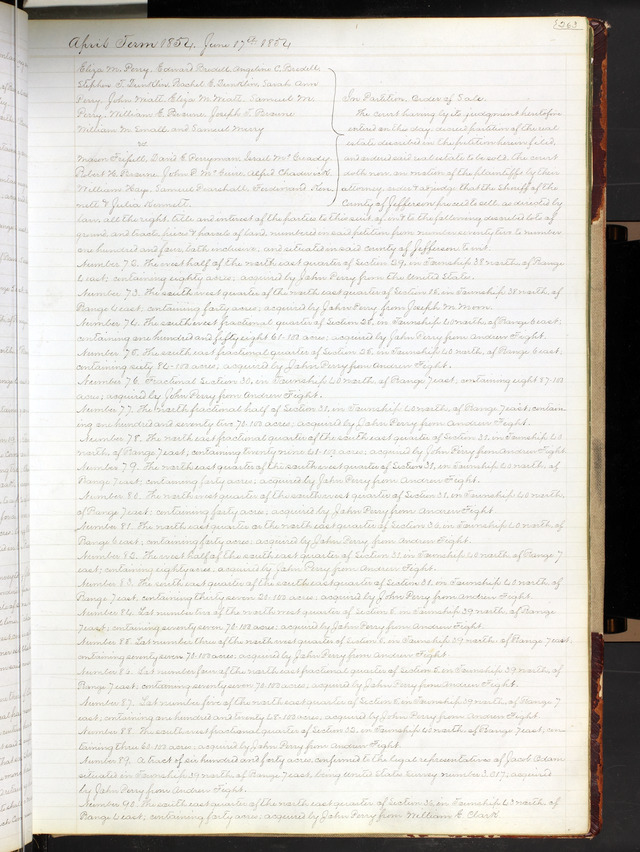 263
April Term 1854. June 17th 1854
Eliza M. Perry, Edward Bredell, Angeline C. Bredell,
Stephen F. Dunklin, Rachel E. Dunklin, Sarah Ann
Perry, John Matt, Eliza M. Matt, Samuel Mc
Perry, William E. Perine, Joseph F. Perine
William M. Small and Samuel Merry
vs
Mason Frissell, David E. Perryman, Israel McGready
Robert H. Perine, John P. McGuire, Alfred Chadwick
William Hays, Samuel Marshall, Ferdinand Ken-
nett & Julia Kennett.
In Partition. Order of Sale.
The court having by its judgment heretofore
entered on this day decreed partition of the real
estate described in the petition herein filed,
and ordered said real estate to be sold, the court
doth now, on motion of the plaintiffs by their
attorney, order & adjudge that the Sheriff of the
County of Jefferson proceed to sell as directed by
law, all the right, title and interest of the parties to this suit of, in & to the following described lots of
ground, and tracts, pieces & parcels of land, numbered in said petition from number seventy two to number
one hundred and four, both inclusive, and situated in said county of Jefferson to wit:
Number 72. The west half of the north east quarter of Section 29, in Township 38 north of Range
6 east; containing eighty acres; acquired by John Perry from the United States.
Number 73. The south west quarter of the north east quarter of Section 18, in Township 38 north of
Range 6 east, containing forty acres; acquired by John Perry from Joseph M. Moon.
Number 74. The south west fractional quarter of Section 28, in Township 40 north, of Range 6 east;
containing one hundred and fifty eight 61-100 acres; acquired by John Perry from Andrew Fight.
Number 75. The south east fractional quarter of Section 28, in Township 40 north, of Range 6 east;
containing sixty 84-100 acres; acquired by John Perry from Andrew Fight.
Number 76. Fractional Section 30, in Township 40 north of Range 7 east; containing eight 87-100
acres; acquired by John Perry from Andrew Fight.
Number 77. The north fractional half of Section 31, in Township 40 north, of Range 7 east; contain-
ing one hundred and seventy two 70-100 acres; acquired by John Perry from Andrew Fight.
Number 78. The north east fractional quarter of the south east quarter of Section 31, in Township 40
north, of Range 7 east; containing twenty nine 41-100 acres; acquired by John Perry from Andrew Fight
Number 79. The north east quarter of the south west quarter of Section 31, in Township 40 north, of
Range 7 east; containing forty acres; acquired by John Perry from Andrew Fight.
Number 80. The north west quarter of the south west quarter of Section 31, in Township 40 north,
of Range 7 east; containing forty acres; acquired by John Perry from Andrew Fight.
Number 81. The north east quarter or the north east quarter of Section 36, in Township 40 north, of
Range 6 east; containing forty acres; acquired by John Perry from Andrew Fight.
Number 82. The west half of the south east quarter of Section 31, in Township 40 north, of Range 7
east; containing eighty acres; acquired by John Perry from Andrew Fight.
Number 83. The south east quarter of the south east quarter of Section 31, in Township 40 north, of
Range 7 east, containing thirty seven 21-100 acres; acquired by John Perry from Andrew Fight.
Number 84. Lot number two of the north west quarter of Section 6, in Township 39 north, of Range
7 east; containing seventy seven 70-100 acres; acquired by John Perry from Andrew Fight.
Number 85. Lot number three of the north west quarter of Section 6, in Township 39 north, of Range 7 east,
containing seventy seven 70-100 acres; acquired by John Perry from Andrew Fight.
Number 86. Lot number four of the north east fractional quarter of Section 5, in Township 39 north, of
Range 7 east; containing seventy seven 70-100 acres; acquired by John Perry from Andrew Fight.
Number 87. Lot number five of the north east quarter of Section 5, in Township 39 north, of Range 7
east; containing one hundred and twenty 48-100 acres; acquired by John Perry from Andrew Fight.
Number 88. The south west fractional quarter of Section 32, in Township 40 north, of Range 7 east; con-
taining three 60-100 acres; acquired by John Perry from Andrew Fight.
Number 89. A tract of six hundred and forty acres, confirmed to the legal representatives of Jacob Adam
situated in Township 39 north of Range 7 east, being United States Survey number 3.017; acquired
by John Perry from Andrew Fight.
Number 90. The south east quarter of the north east quarter of Section 36, in Township 40 north, of
Range 6 east; containing forty acres; acquired by John Perry from William G. Clark.